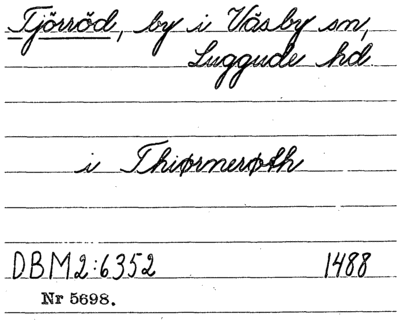 Tjörröd, by i Väsby sn,
Luggude hd
i Thiørnerøth
DBM2:6352 1488
Nr 5698.